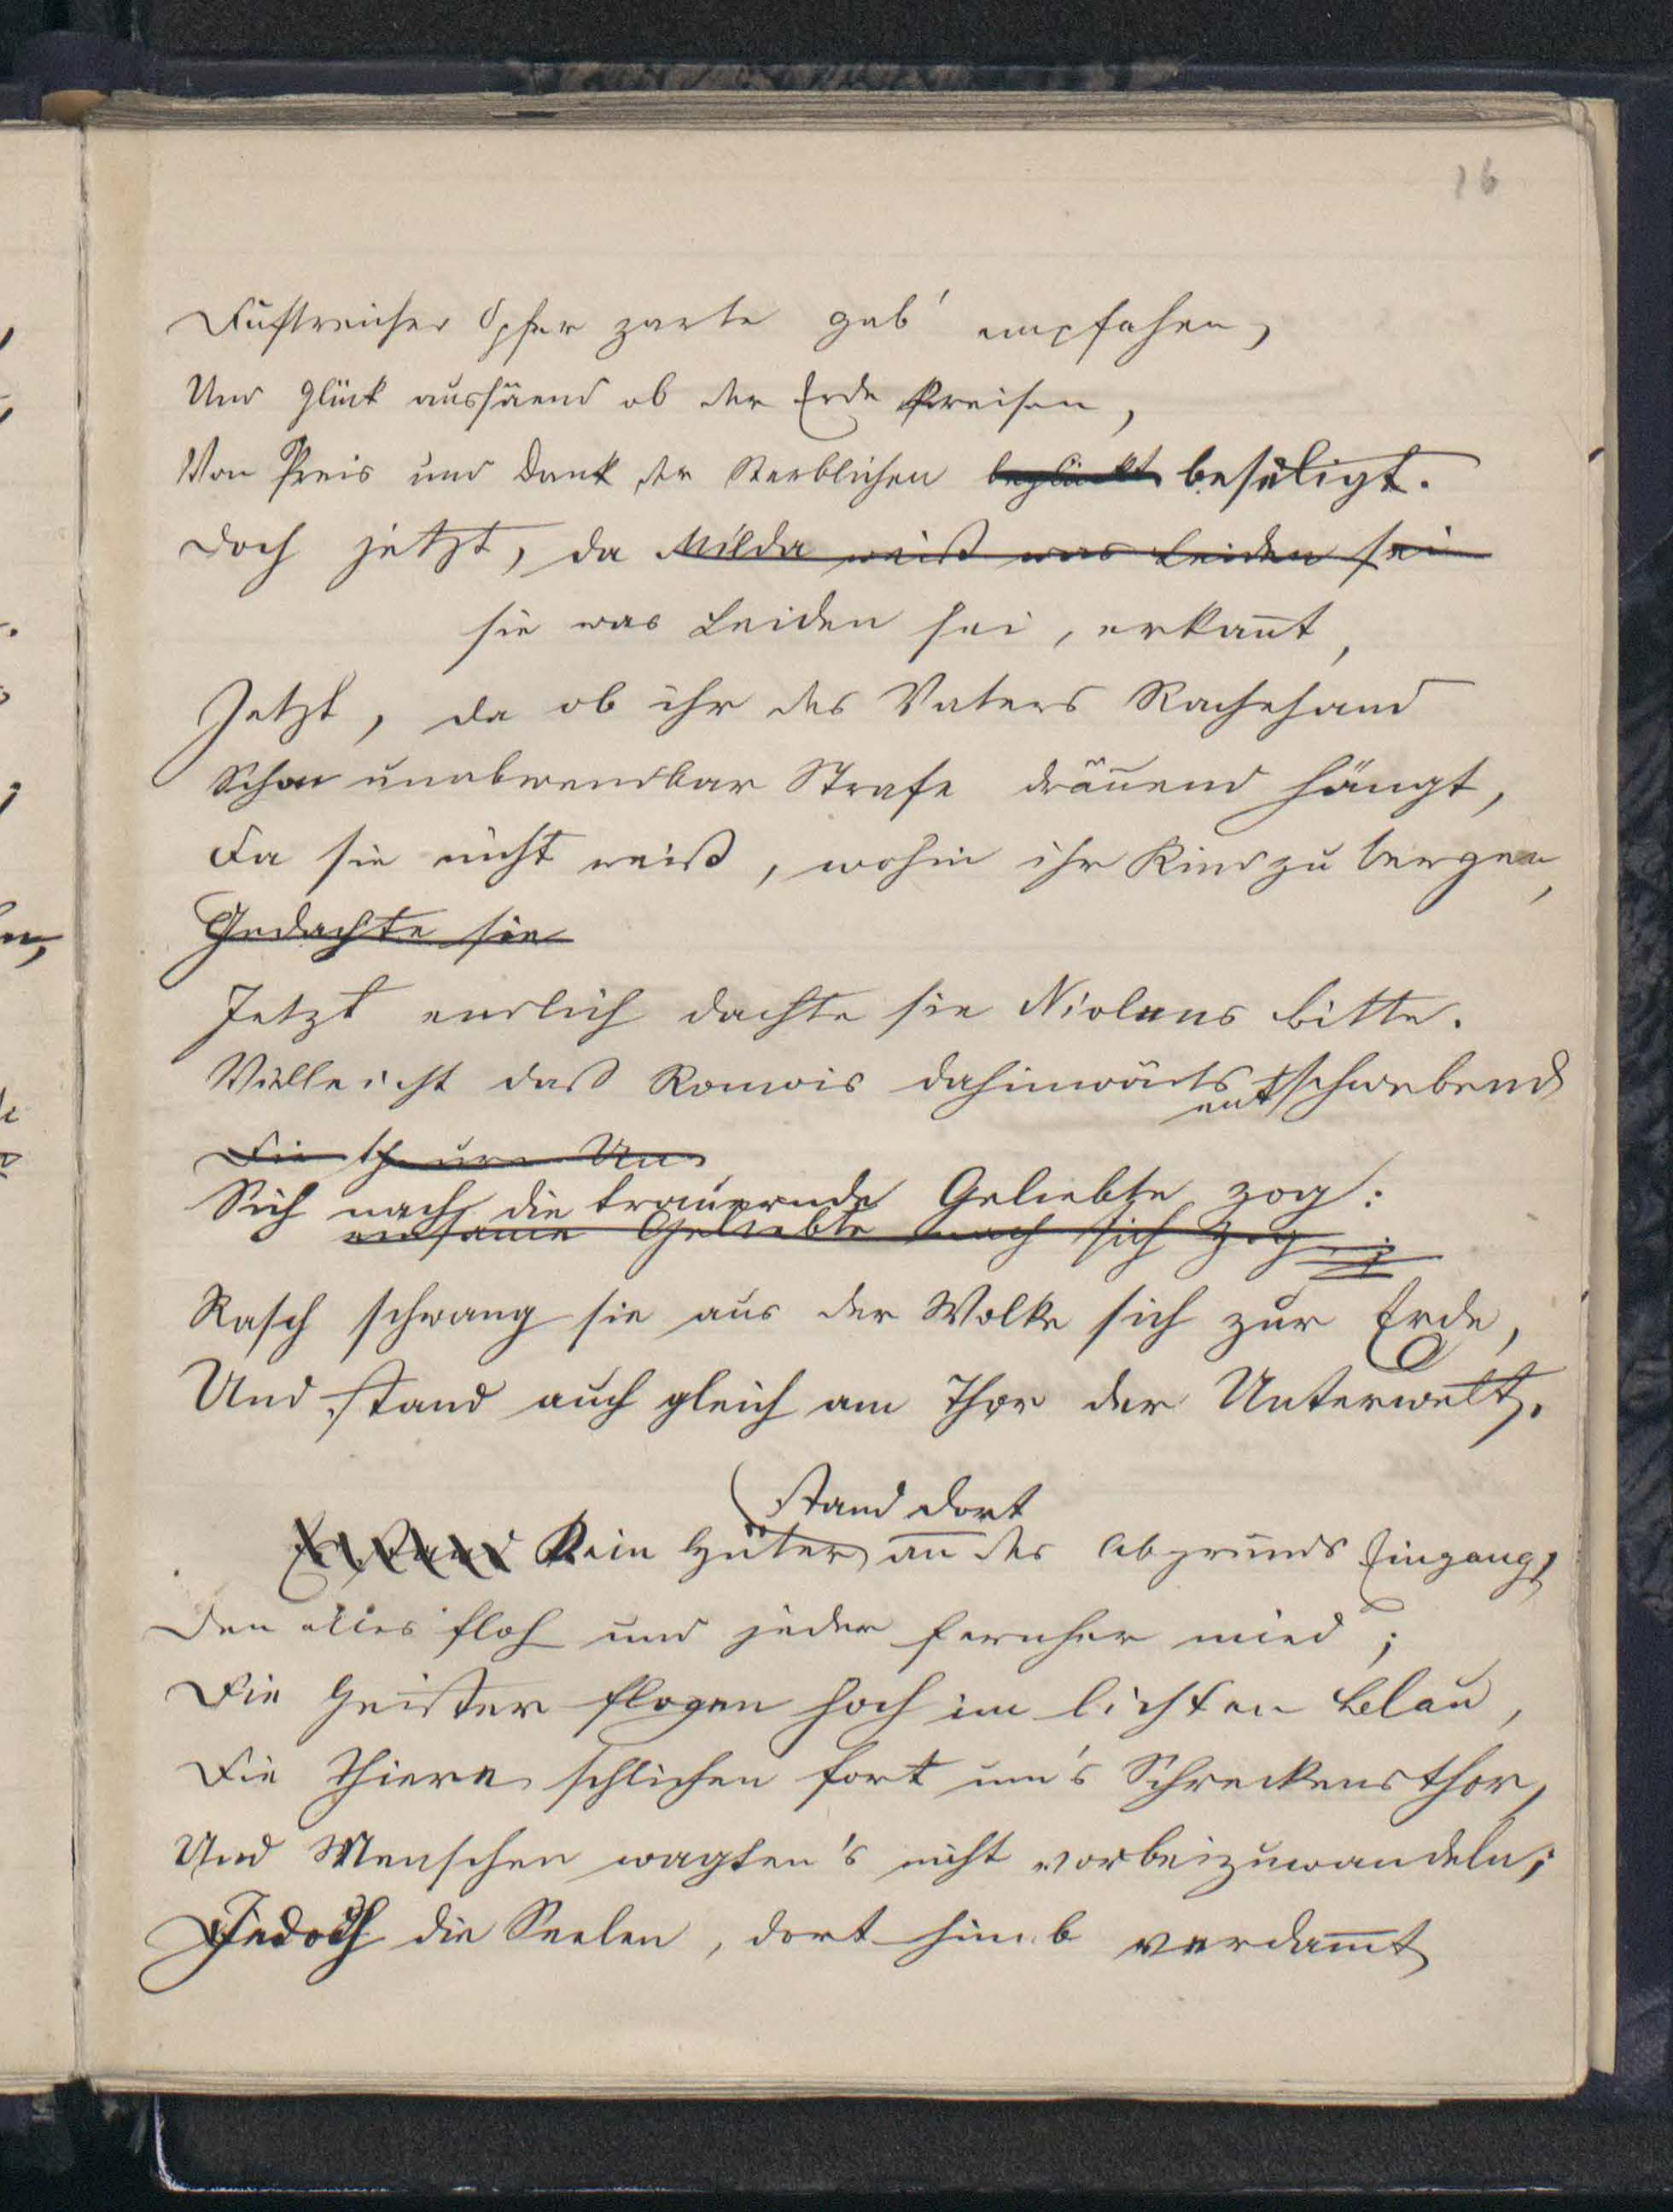 16
Duftreicher Opfer zarte gab' empfahen,
Und Glück aussäend ob der Erde kreisen,
Von Preis und Dank der Sterblichen beglückt beseligt.
Doch jetzt, da Milda weiß was Leiden sei
sie was Leiden sei, erkan̄t,
Jetzt, da ob ihr des Vaters Rachehand
Schon unabwendbar Strafe dräuend hängt,
Da sie nicht weiß, wohin ihr Kind zu bergen,
Gedachte sie
Jetzt endlich dachte sie Niolans Bitte.
Villeicht daß Romois dahinwärts entschwebend
Die theure Un
Sich nach die trauernde Geliebte zog:
einsame Geliebte nach sich zog;
Rasch schwang sie aus der Wolke sich zur Erde,
Und stand auch gleich am Thor der Unterwelt.
stand dort
Kein Hüter an des Abgrunds Eingang,
Den alles floh und jeder fernher mied;
Die Geister flogen hoch im lichten Blau,
Die Thiere schlichen fort um's Schreckensthor,
Und Menschen wagten's nicht vorbeizuwandeln;
Jedoch die Seelen, dort hinab verdam̄t